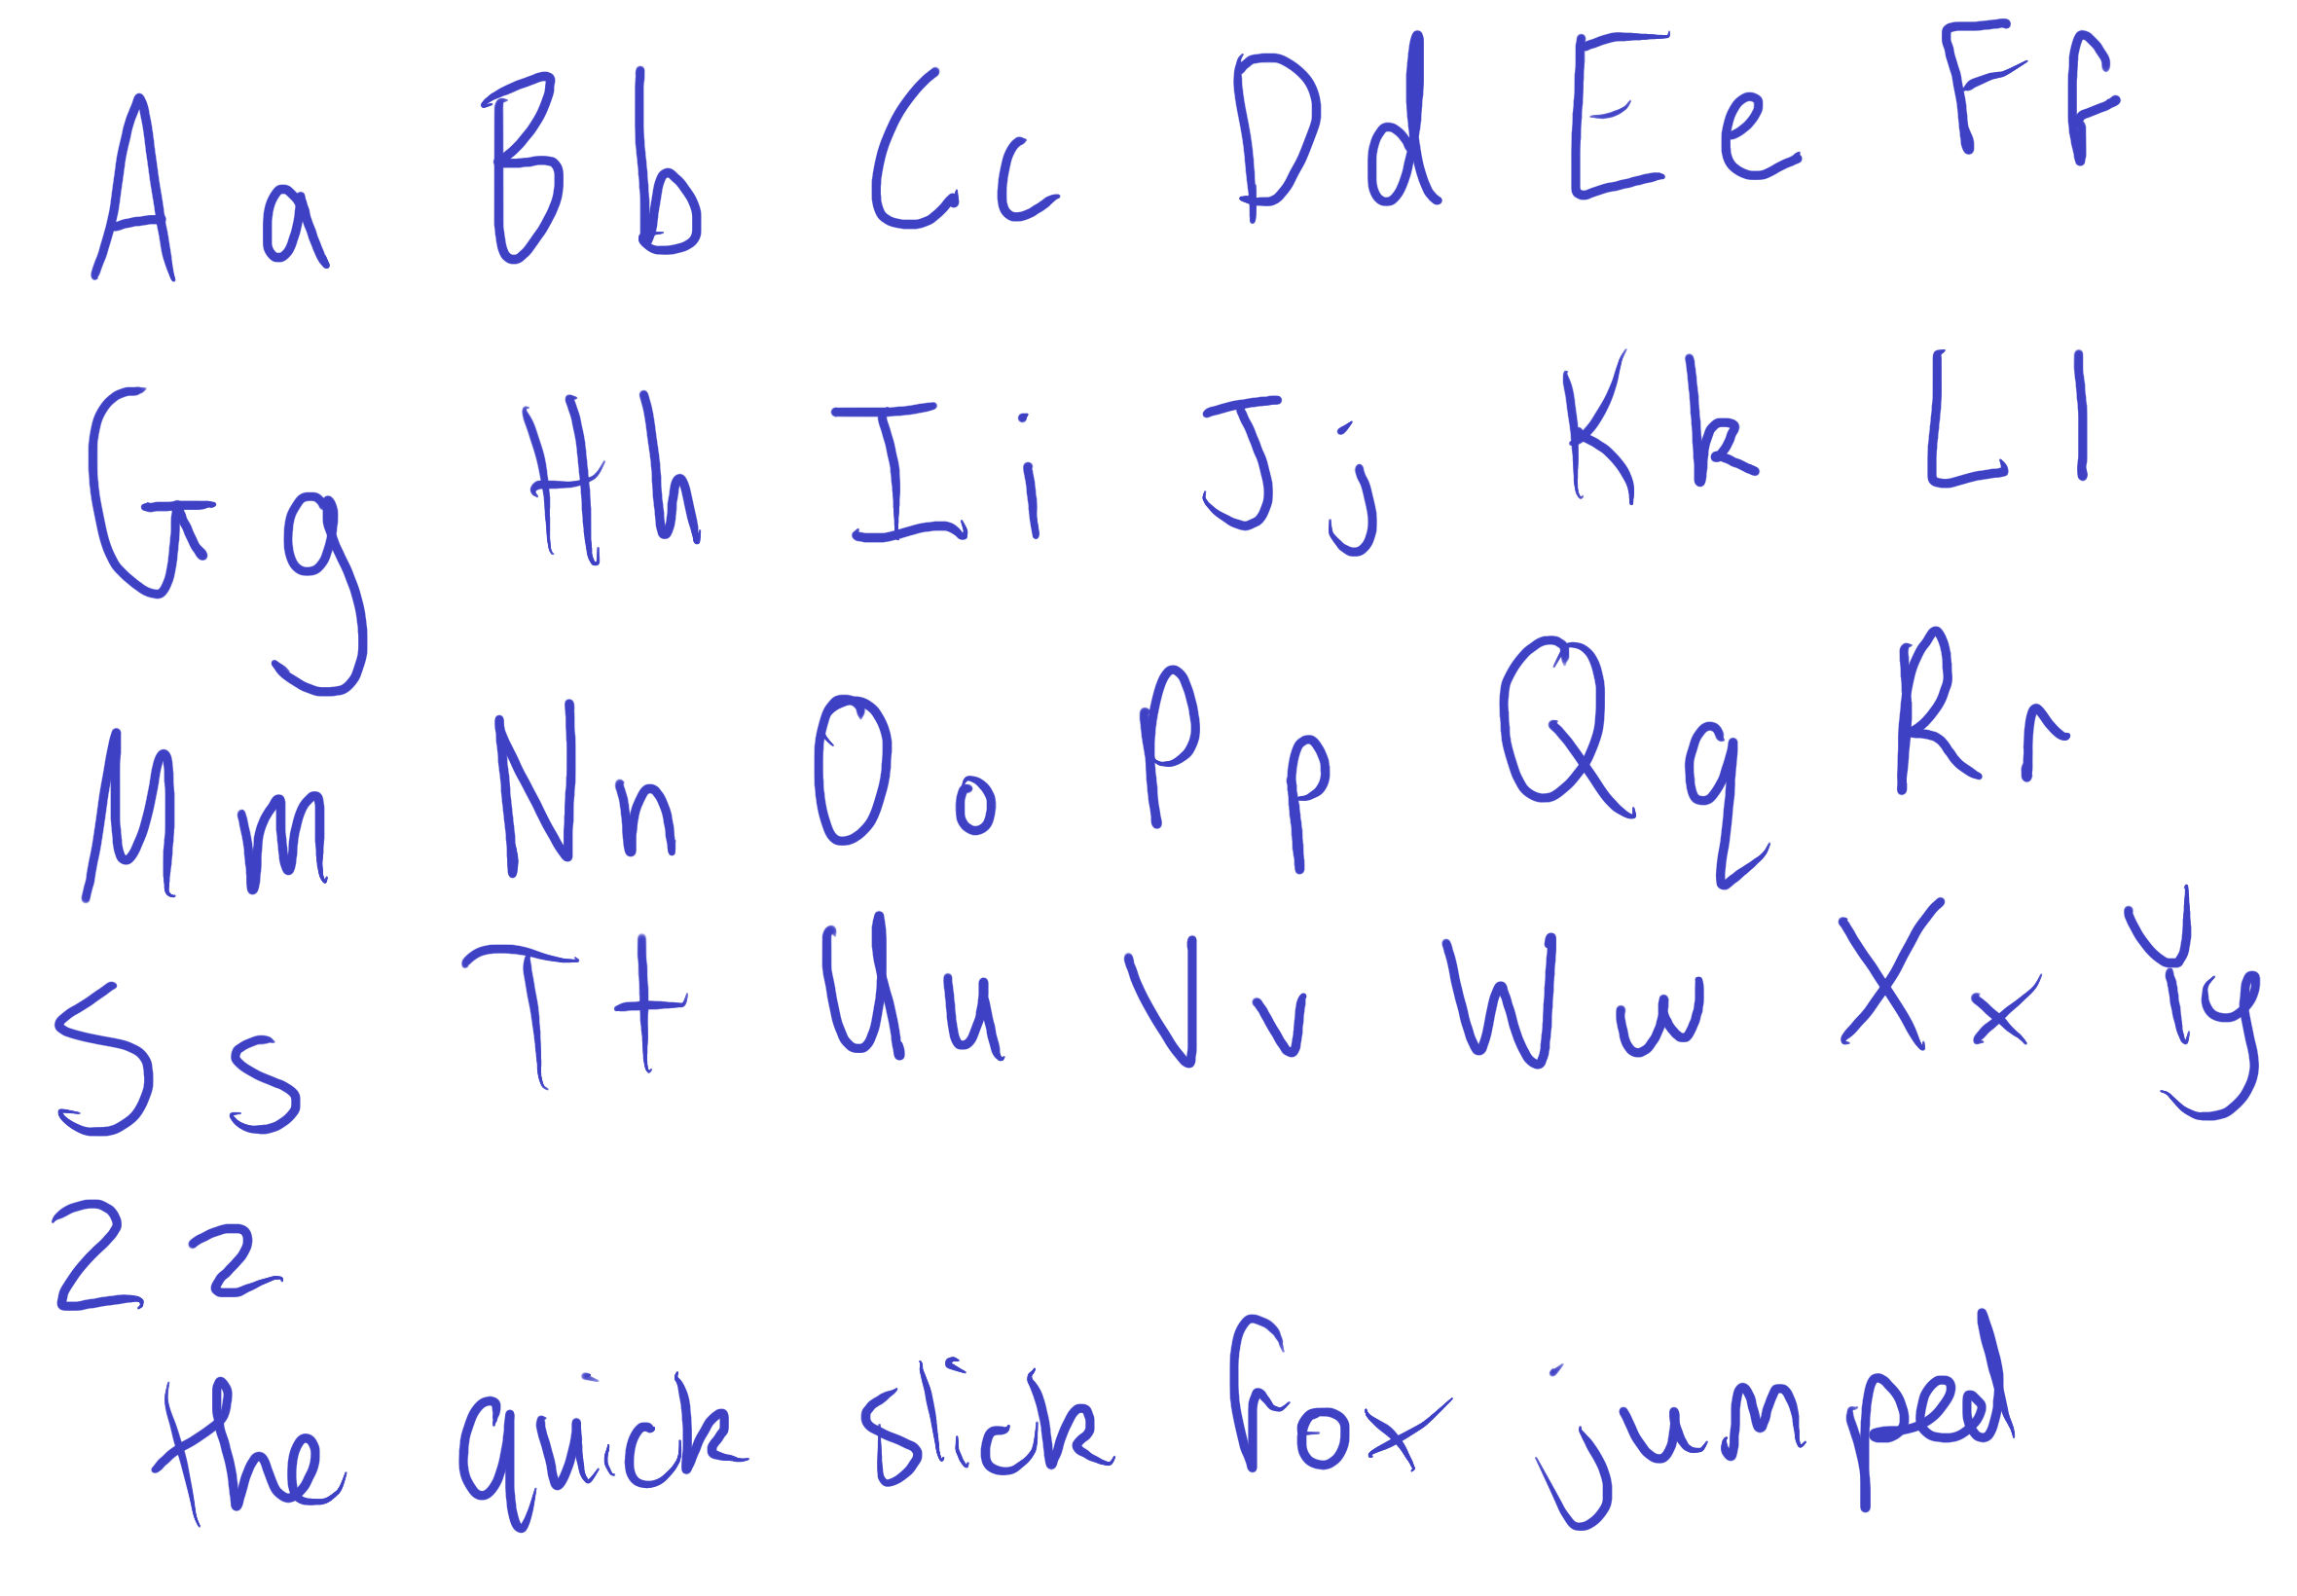 A a B b C c D d E e F f
G g H h I i J j K k L l
M m N n O o P p Q q R r
S s T t U u V v W w X x Y y
Z z
the quick slick fox jumped